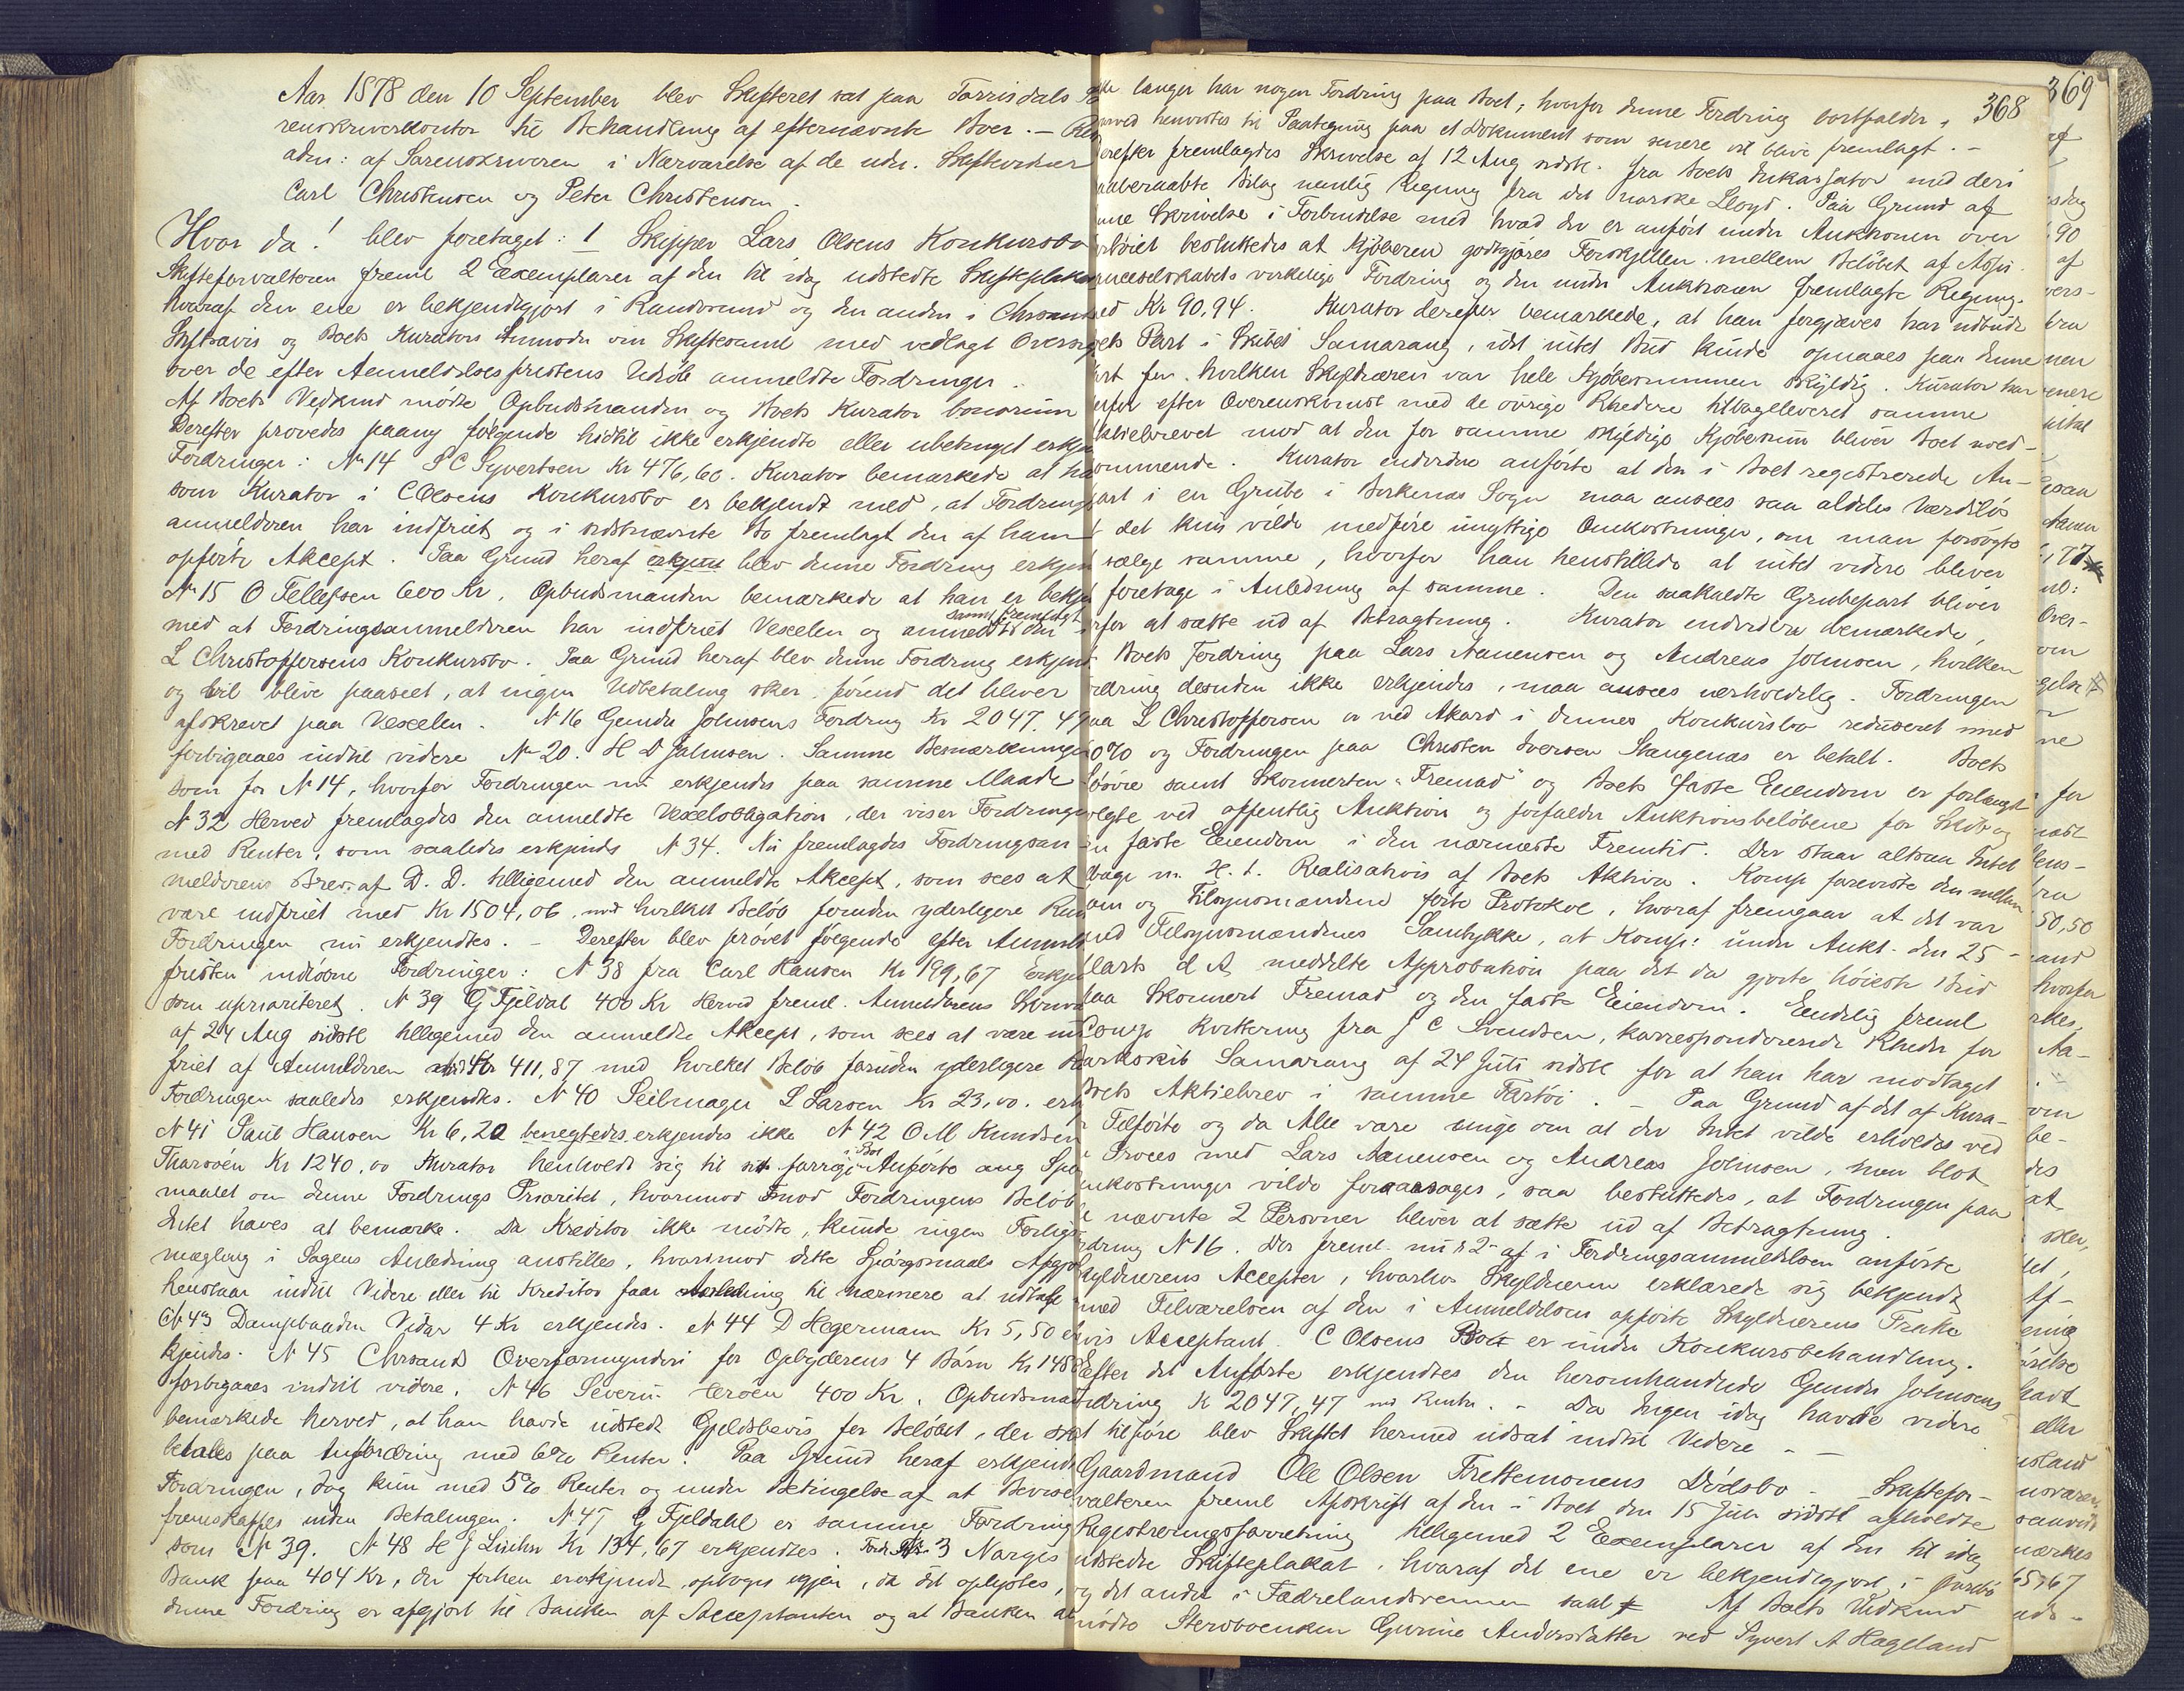 Aar 1878 den 10 September blev Skifteret sat paa Torrisdals So
renskriverkontor til Behandling af efternævnte Boer. —
aden: af Sorenskriveren i Nærværelse af de udn. Skiftevidner
Carl Christensen og Peter Christensen.
Hvor da! blev foretaget: 1 Skipper Lars Olsens Konkursbo
Skifteforvalteren freml 2 Exemplarer af den til idag udstedte Skifteplakat
hvoraf den ene er bekjendtgjort i Randøsund og den anden i Chrsands
Stiftsavis og Boets Kurators Anmodn om Skiftesaml med vedlagt Oversigt
over de efter Anmeldelsesfristens Udløb anmeldte Fordringer.
Af Boets Vedkmd mødte Opbudsmanden og Boets Kurator bonorum
Derefter prøvedes paany følgende hidtil ikke erkjendte eller ubetinget erkj
Fordringer: N 14 S C Syvertsen Kr 476,60. Kurator bemærkede at han
som Kurator i C Olsens Konkursbo er bekjendt med, at Fordrings
anmelderen har indfriet og i sidstnævnte Bo fremlagt den af ham
opførte Akcept. Paa Grund heraf blev denne Fordring erkjen
N 15 O Tellefsen 600 Kr. Opbudsmanden bemærkede at han er bekjen
samt fremlagt
med at Fordringsanmelderen har indfriet Vexelen og anmeldt den i
L Christoffersens Konkursbo. Paa Grund heraf blev denne Fordring erkjendt
og vil blive paaseet, at ingen Udbetaling sker førend det bliver
afskrevet paa Vexelen. N 16 Gunder Johnsens Fordring Kr 2047.47
forbigaaes indtil videre N 20. H D Johnsen. Samme Bemærkninger
som for N 14, hvorfor Fordringen nu erkjendes paa samme Maade
N 32 Herved fremlagdes den anmeldte Vexelobligation, der viser Fordringen
med Renter, som saaledes erkjendes N 34. Nu fremlagdes Fordringsan
melderens Brev af D. D. tilligemed den anmeldte Akcept, som sees at
være indfriet med Kr 1504,06, med hvilket Beløb foruden yderligere Ren
Fordringen nu erkjendtes. — Derefter blev prøvet følgende efter Anmeld
fristen indkomne Fordringer: N 38 fra Carl Hansen Kr 199,67 Erkjen
som uprioriteret. N 39 G Fjeldal 400 Kr Herved freml. Anmelderens Skriv
af 24 Aug sidstl tilligemed den anmeldte Akcept, som sees at være ind
friet af Anmelderen med Kr 411,87 med hvilket Beløb foruden yderligere R
Fordringen saaledes erkjendtes. N 40 Seilmager L Larsen Kr 23,00. erkj
N 41 Paul Hansen Kr 6,20 benegtedes, erkjendes ikke N 42 O M Knudsen
Tharsøen Kr 1240,00 Kurator henholdt sig til sit forrige i Bo Anførte ang Spø
maalet om denne Fordrings Prioritet, hvorimod mod Fordringens Beløb
Intet haves at bemærke. Da Kreditor ikke mødte, kunde ingen Forligs
mægling i Sagens Anledning anstilles, hvorimod dette Spørgsmaals Afgjø
henstaar indtil Videre eller til Kreditor faar Anledning til nærmere at udtale
N 43 Dampbaaden Vidar 4 Kr erkjendes. N 44 D Hegermann Kr 5,50 er
kjendes. N 45 Chrsands Overformynderi for Opbyderens 4 Børn Kr 1458
forbigaaes indtil videre. N 46 Severin Terøen 400 Kr. Opbudsman
bemærkede herved, at han havde udstedt Gjeldsbevis for Beløbet, der skal
betales paa Anfordring med 6% Renter. Paa Grund heraf erkjendtes
Fordringen, dog kun med 5% Renter og under Betingelse af at Beviset
fremskaffes inden Betalingen. N 47 G Fjeldahl er samme Fordring
som N 39. N 48 H J Liihn Kr 134,67 erkjendtes. Fordr. N 3 Norges
Bank paa 404 Kr, der forhen er erkjendt optoges igjen, da det oplystes,
denne Fordring er afgjort til Banken af Acceptanten og at Banken al
368
369
ikke længer har nogen Fordring paa Boet; hvorfor denne Fordring bortfalder,
herved henvistes til Paategning paa et Dokument som senere vil blive fremlagt. —
Derefter fremlagdes Skrivelse af 12 Aug sidstl. fra Boets Inkassator med deri
paaberaabte Bilag nemlig Regning fra det norske Lloyd. Paa Grund af
nne Skrivelse i Forbindelse med hvad der er anført under Auktionen over
sløiet besluttedes at Kjøberen godtgjøres Forskjellen mellem Beløbet af Assu
ranceselskabets virkelige Fordring og den under Auktionen fremlagte Regning.
ed Kr 90.94. Kurator derefter bemærkede, at han forgjæves har udbudt
ets Part i Skibet Samarang, idet intet Bud kunde opnaaes paa denne
art for hvilken Skyldneren var hele Kjøbesummen skyldig. Kurator har
erfor efter Overenskomst med de øvrige Rhedere tilbageleveret samme
ktiebrevet mod at den for samme skyldige Kjøbesum bliver Boet ved-
ommende. Kurator endvidere anførte at den i Boet registrerede An-
part i en Grube i Birkenæs Sogn maa ansees saa aldeles Værdiløs
t det kun vilde medføre unyttige Omkostninger, om man forsøgte
sælge samme, hvorfor han henstillede at intet videre bliver
foretage i Anledning af samme. Den saakaldte Grubepart bliver
rfor at sætte ud af Betragtning. Kurator endvidere bemærkede,
Boets Fordring paa Lars Aanensen og Andreas Johnsen, hvilken
ordring desuden ikke erkjendes, maa ansees uerholdelig. Fordringen
paa L Christoffersen er ved Akord i dennes Konkursbo reduseret med
0% og Fordringen paa Christen Iversen Stangenæs er betalt. Boets
Løsøre samt Skonnerten "Fremad" og Boets faste Eiendom er forlængst
solgte ved offentlig Auktion og forfalder Auktionsbeløbene for Skib og
n faste Eiendom i den nærmeste Fremtid. Der staar altsaa Intet
tilbage m. H. t. Realisation af Boets Aktiva. Komp foreviste den mellem
am og Tilsynsmændene førte Protokol, hvoraf fremgaar at det var
med Tilsynsmændenes Samtykke, at Komp: under Aukt. den 25 -
Marts d A. meddelte Approbation paa det da gjorte høieste Bud
paa Skonnert Fremad og den faste Eiendom. Endelig freml
Comp Kvittering fra J C Svendsen, korresponderende Rheder for
Barkskib Samarang af 24 Juli sidstl for at han har modtaget
Boets Aktiebrev i samme Fartøi. — Paa Grund af det af Kura-
r Tilførte og da Alle vare enige om at der Intet vilde erholdes ved
Proces med Lars Aanensen og Andreas Johnsen, men blot
Omkostninger vilde foraarsages, saa besluttedes, at Fordringen paa
nævnte 2 Personer bliver at sætte ud af Betragtning.
ordring N 16. Der freml. nu 2 af i Fordringsanmeldelsen anførte
Skyldnerens Accepter, hvorhos Skyldneren erklærede sig bekjendt
med Tilværelsen af den i Anmeldelsen opførte Skyldnerens Tratte
vis Acceptant C Olsens Bo er under Konkursbehandling.
Efter det Anførte erkjendtes den heromhandlede Gunder Johnsens
ordring K 2047,47 med Renter. — Da Ingen idag havde videre
t tilføre blev Skiftet hermed udsat indtil Videre — —
Gaardmand Ole Olsen Trettemonens Dødsbo. — Skiftefor-
valteren freml Afskrift af den i Boet den 15 Juli sidstl afholdte
Registreringsforretning tilligemed 2 Exemplarer af den til idag
udstedte Skifteplakat, hvoraf det ene er bekjendtgjort i
og det andet i Fædrelandsvennen Af Boets Vedkmd
mødte Sterboenken Gurine Andersdatter ved Syvert A Hageland